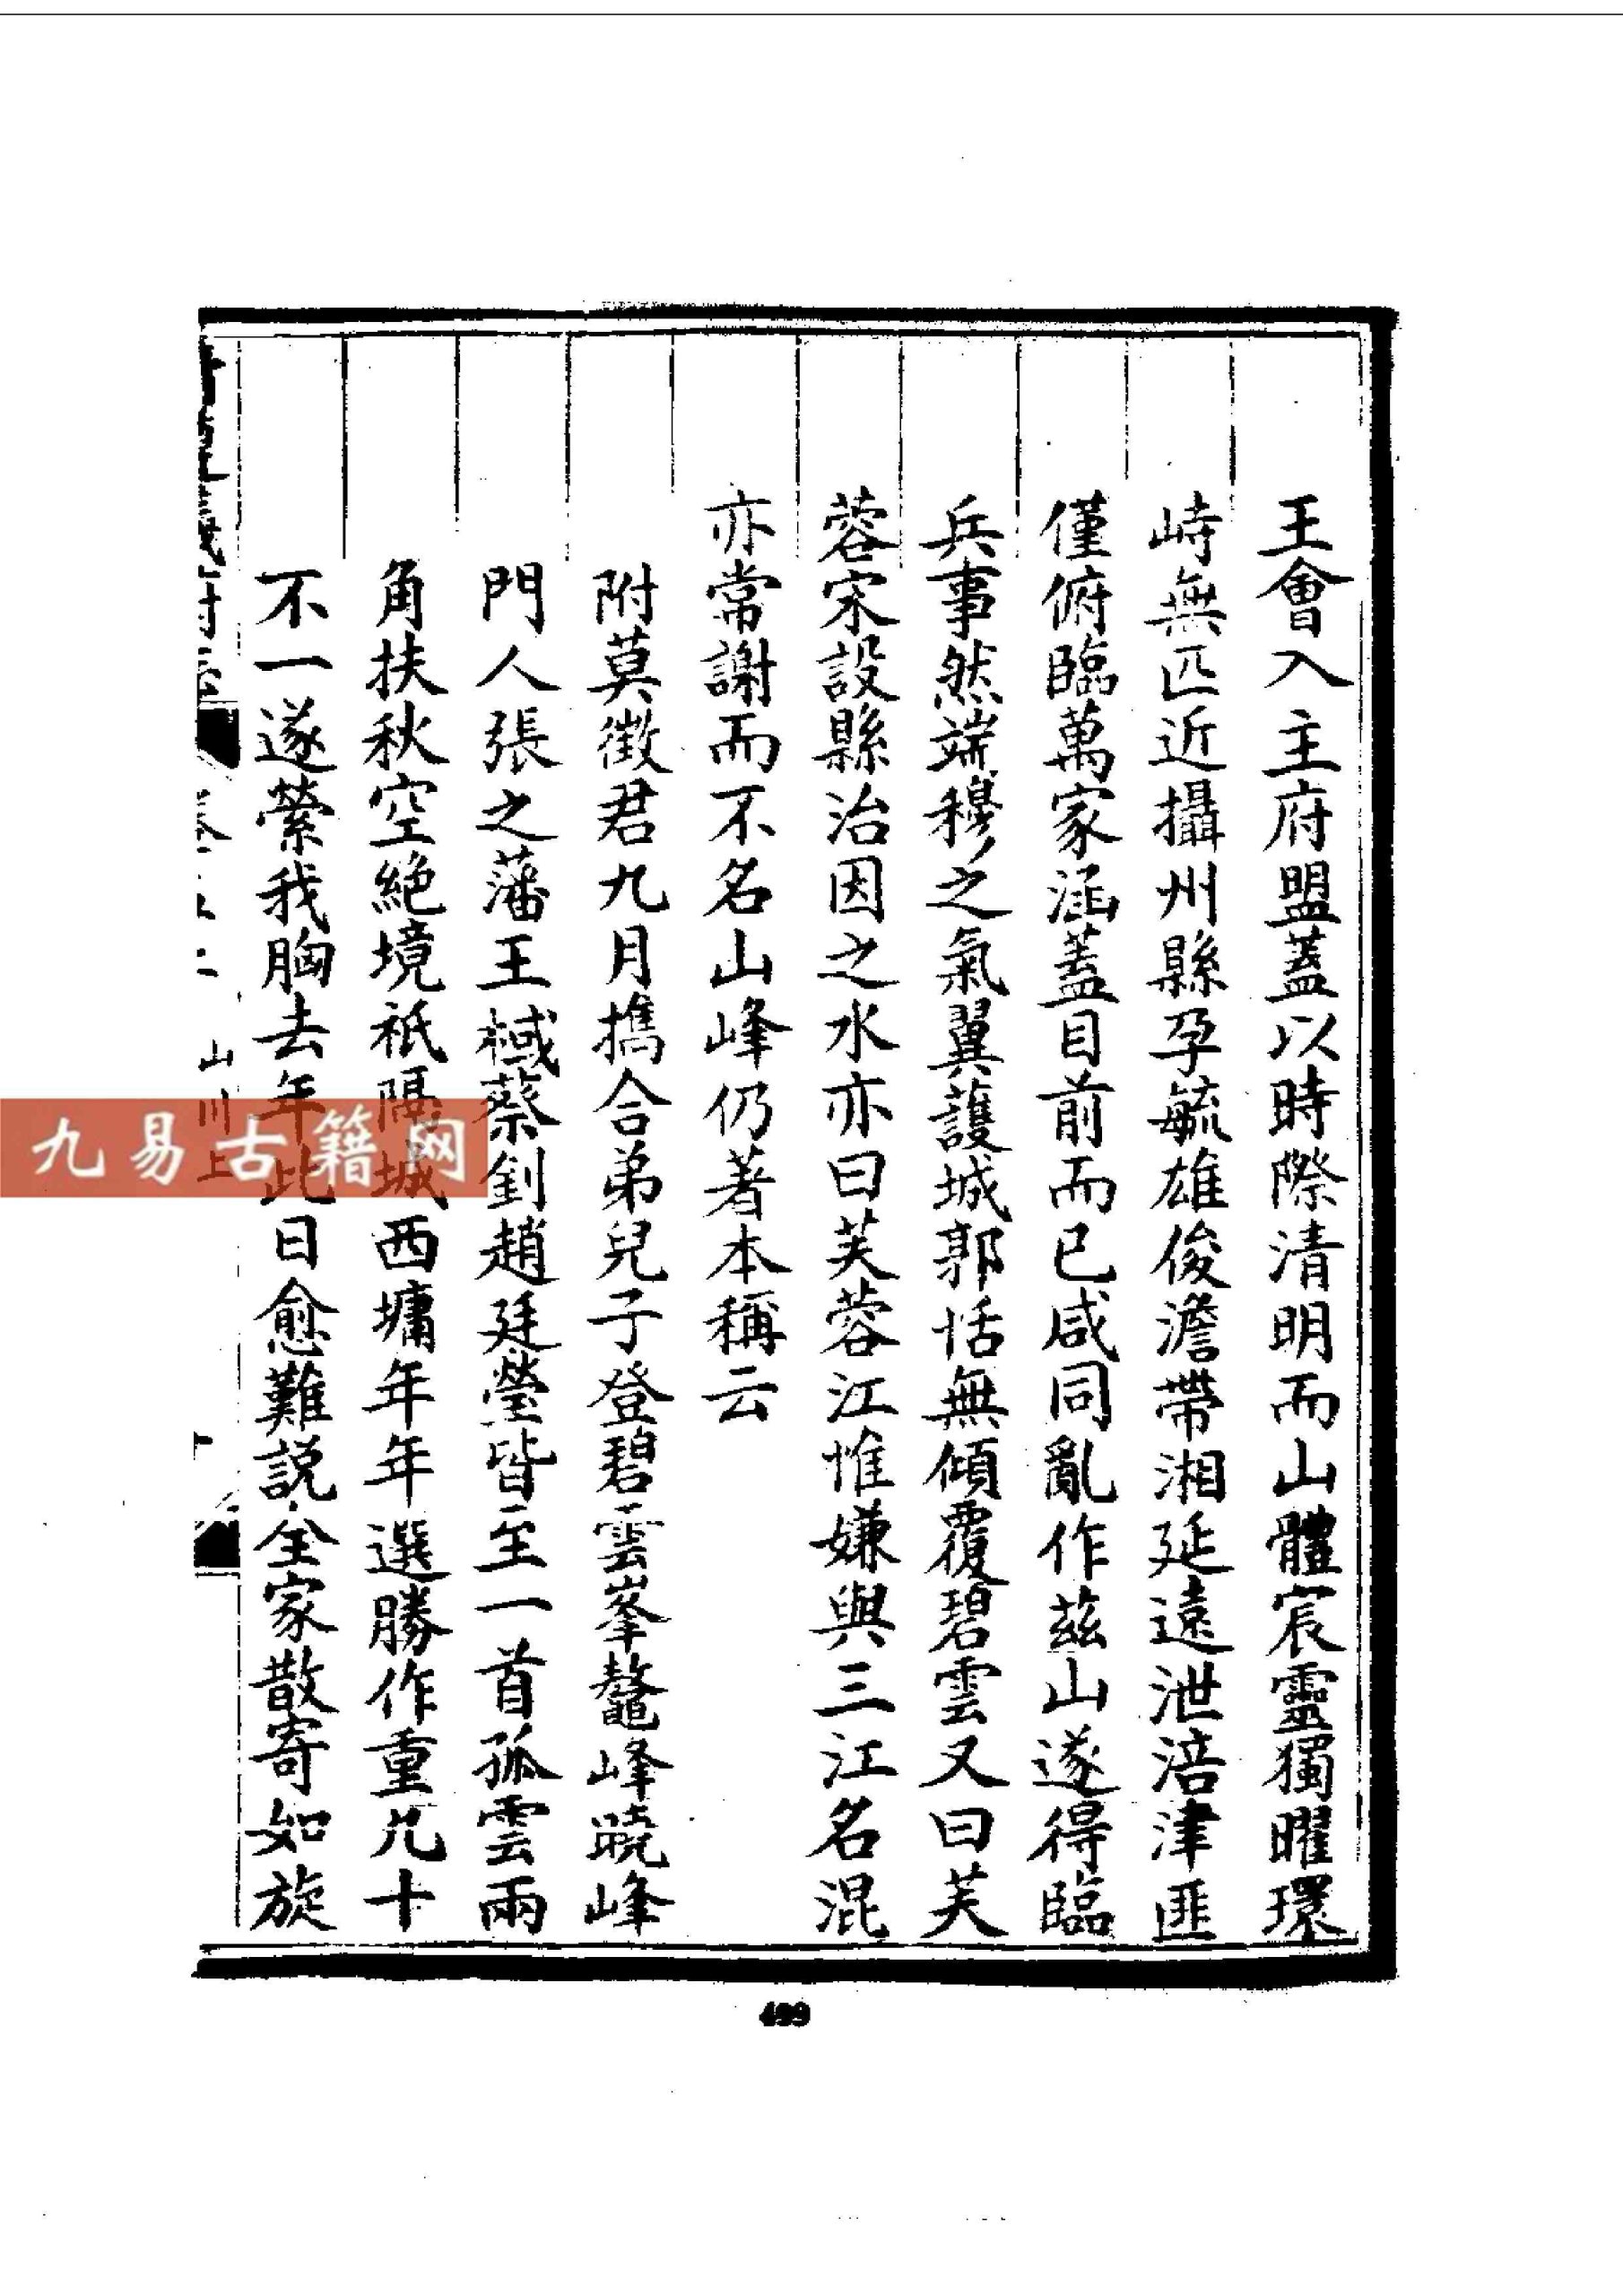 王會入主府盟蓋以時際清明而山體宸靈獨曜環
峙無匹近攝州縣孕毓雄俊澹帶湘延遠泄涪津匪
僅俯臨萬家涵蓋目前而已咸同亂作茲山遂得臨
兵事然端穆之氣翼護城郭恬無傾覆碧雲又曰芙
蓉宋設縣治因之水亦曰芙蓉江惟嫌與三江名混
亦常謝而不名山峰仍著本稱云
附莫徵君九月擕合弟兒子登碧雲峯鼇峰曉峰
門人張之藩王棫蔡釗趙廷瑩皆至一首孤雲兩
角扶秋空絕境祇隔城西墉年年選勝作重九十
不一遂縈我胸去年此日愈難説全家散寄如旋
山川上
九易古籍网
499